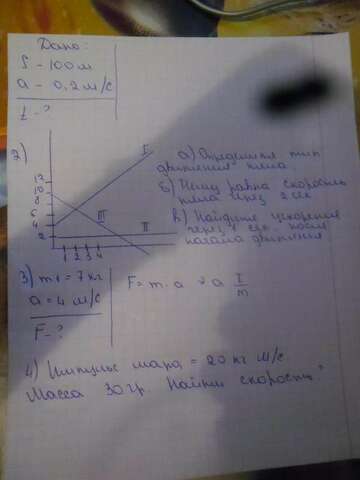 Дано:
S - 100 м
a - 0,2 м/с
t - ?
2)
12
10
8
6
4
2
1 2 3 4
I
III
II
а) Определите тип
движения тела.
б) Чему равна скорость
тела через 2 сек
в) Найдите ускорение
через 1 сек. после
начала движения
3) m1 = 7 кг
a = 4 м/с
F - ?
F = m · a
4) Импульс шара = 20 кг м/с
Масса 30 гр. Найти скорость?